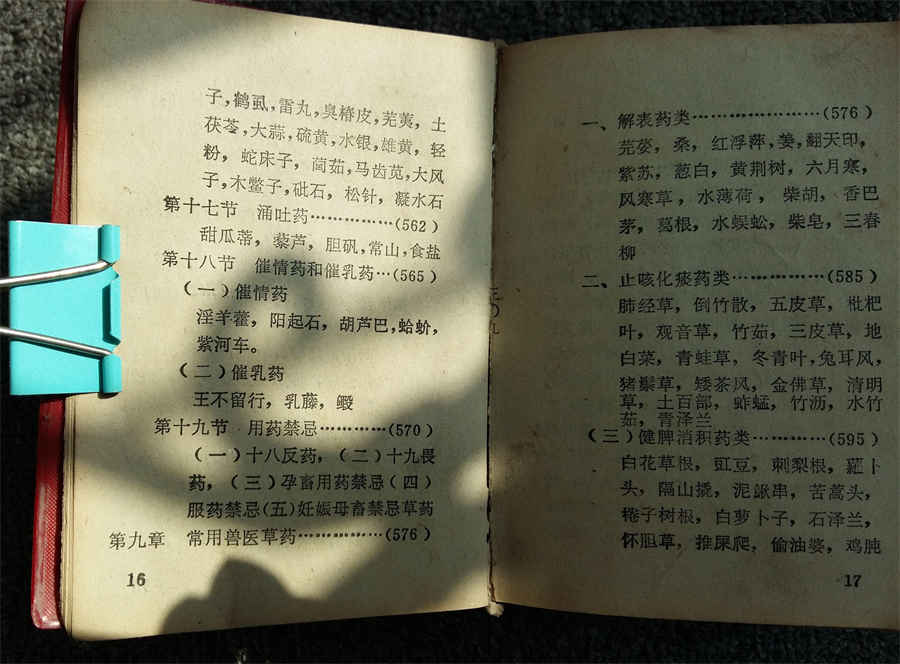 子，鹤虱，雷丸，臭椿皮，芜荑，土
茯苓，大蒜，硫黄，水银，雄黄，轻
粉，蛇床子，䕡茹，马齿苋，大风
子，木鳖子，砒石，松针，凝水石
第十七节 涌吐药……………(562)
甜瓜蒂，藜芦，胆矾，常山，食盐
第十八节 催情药和催乳药…(565)
(一)催情药
淫羊藿，阳起石，胡芦巴，蛤蚧，
紫河车。
(二)催乳药
王不留行，乳藤，鲮
第十九节 用药禁忌…………(570)
(一)十八反药，(二)十九畏
药，(三)孕畜用药禁忌(四)
服药禁忌(五)妊娠母畜禁忌草药
第九章 常用兽医草药……………(576)
16
一、解表药类…………………(576)
芫荽，桑，红浮萍，姜，翻天印，
紫苏，葱白，黄荆树，六月寒，
风寒草，水薄荷，柴胡，香巴
茅，葛根，水蜈蚣，柴皂，三春
柳
二、止咳化痰药类……………(585)
肺经草，倒竹散，五皮草，枇杷
叶，观音草，竹茹，三皮草，地
白菜，青蛙草，冬青叶，兔耳风，
猪鬃草，矮茶风，金佛草，清明
草，土百部，蚱蜢，竹沥，水竹
茹，青泽兰
(三)健脾消积药类…………(595)
白花草根，豇豆，刺梨根，蘿卜
头，隔山撬，泥鳅串，苦蒿头，
棬子树根，白萝卜子，石泽兰，
怀胆草，推屎爬，偷油婆，鸡肫
17